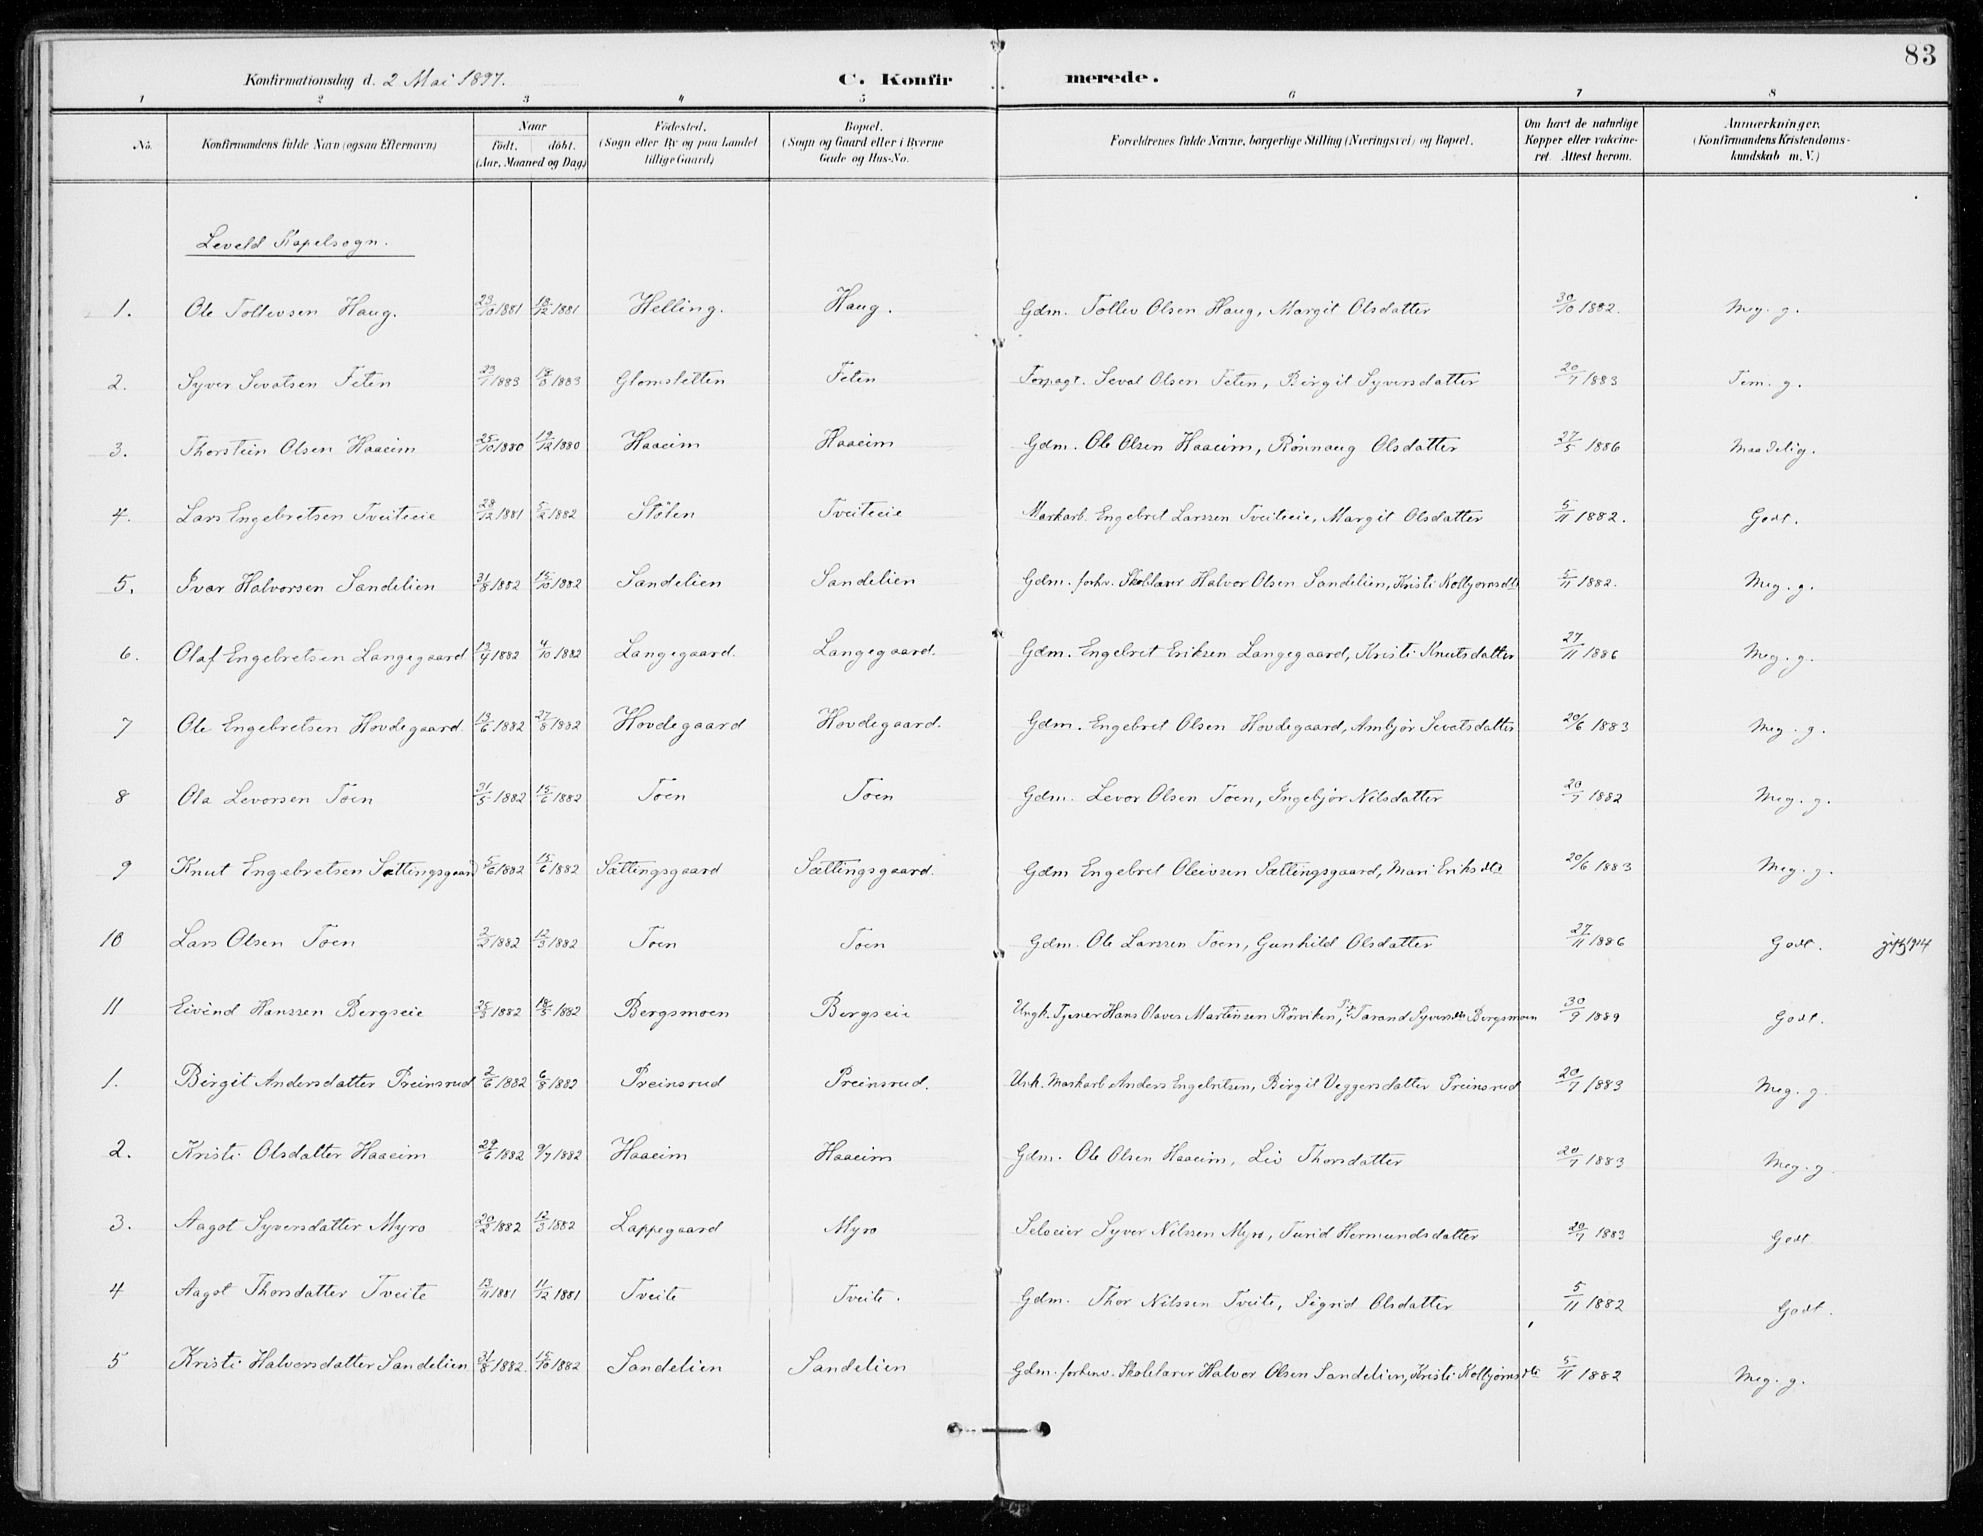 83
Konfirmationsdag d. 2 Mai 1897. C. Konfirmerede.
1 2 3 4 5 6 7 8
No. Konfirmandens fulde Navn (ogsaa Efternavn) Naar født. døbt. (Aar, Maaned og Dag) Fødested. (Sogn eller By og paa Landet tillige Gaard) Bopæl. (Sogn og Gaard eller i Byerne Gade og Hus-No. Forældrenes fulde Navne, borgerlige Stilling (Næringsvei) og Bopæl. Om havt de naturlige Kopper eller vakcineret. Attest herom. Anmerkninger. (Konfirmandens Kristendomskundskab m. V.)
Leveld Kapelsogn.
1. Ole Tollevsen Haug. 23/10 1881 18/12 1881 Helling. Haug. Gdm. Tollev Olsen Haug, Margit Olsdatter 30/10 1882. Meg. g.
2. Syver Sevatsen Feten 23/1 1883 18/3 1883 Glomsletten Feten Forpagt. Sevat Olsen Feten, Birgit Syversdatter 20/7 1883 Tem. g.
3. Thorstein Olsen Haaeim 25/10 1880 19/12 1880 Haaeim Haaeim Gdm. Ole Olsen Haaeim, Rønnaug Olsdatter 27/5 1886 Maadelig.
4. Lars Engebretsen Tveiteeie 28/12 1881 5/2 1882 Stølen Tveiteeie Markarb. Engebret Larssen Tveiteeie, Margit Olsdatter 5/11 1882. Godt.
5. Ivar Halvorsen Sandelien 31/8 1882 15/10 1882 Sandelien Sandelien Gdm. forhv. Skolelærer Halvor Olsen Sandelien, Kristi Kolbjørnsdtr 5/11 1882. Meg. g.
6. Olaf Engebretsen Langegaard 1882 4/10 1882 Langegaard Langegaard. Gdm. Engebret Eriksen Langegaard, Kristi Knutsdatter 27/11 1886 Meg. g.
7 Ole Engebretsen Hovdegaard. 13/6 1882 27/8 1882 Hovdegaard Hovdegaard. Gdm. Engebret Olsen Hovdegaard, Ambjør Sevatsdatter 20/6 1883 Meg. g.
8 Ola Levorsen Toen 31/5 1882 15/6 1882 Toen Toen Gdm. Levor Olsen Toen, Ingebjør Nilsdatter 20/7 1882 Meg. g.
9 Knut Engebretsen Sættingsgaard 5/6 1882 15/6 1882 Sættingsgaard Sættingsgaard. Gdm Engebret Oleivsen Sættingsgaard, Mari Eriksdtr 20/6 1883 Meg. g.
10 Lars Olsen Toen 2/2 1882 12/3 1882 Toen Toen Gdm. Ole Larssen Toen, Gunhild Olsdatter 27/11 1886 Godt.
11 Eivind Hanssen Bergseie 25/3 1882 18/5 1882 Bergsmoen Bergseie Ungk. Tjener Hans Olaves Martinsen Rørviken, Tarand Syversdtr Bergsmoen 30/9 1889 Godt.
1. Birgit Andersdatter Preinsrud 2/6 1882 6/8 1882 Preinsrud Preinsrud. Unk. Markarb Anders Engebretsen, Birgit Veggersdatter Preinsrud 20/7 1883 Meg. g.
2. Kristi Olsdatter Haaeim 29/6 1882 9/7 1882 Haaeim Haaeim Gdm. Ole Olsen Haaeim, Liv Thorsdatter 20/7 1883 Meg. g.
3. Aagot Syversdatter Myro 20/2 1882 12/3 1882 Lappegaard Myro Selveier Syver Nilssen Myro, Turid Hermundsdatter 20/7 1883 Godt
4 Aagot Thorsdatter Tveite 13/11 1881 11/12 1881 Tveite Tveite. Gdm. Thor Nilssen Tveite, Sigrid Olsdatter 5/11 1882 Godt.
5 Kristi Halvorsdatter Sandelien 31/8 1882. 15/10 1882 Sandelien Sandelien Gdm. forhenv. Skolelærer Halvor Olsen Sandelien, Kristi Kolbjørnsdtr 5/11 1882 Meg. g.